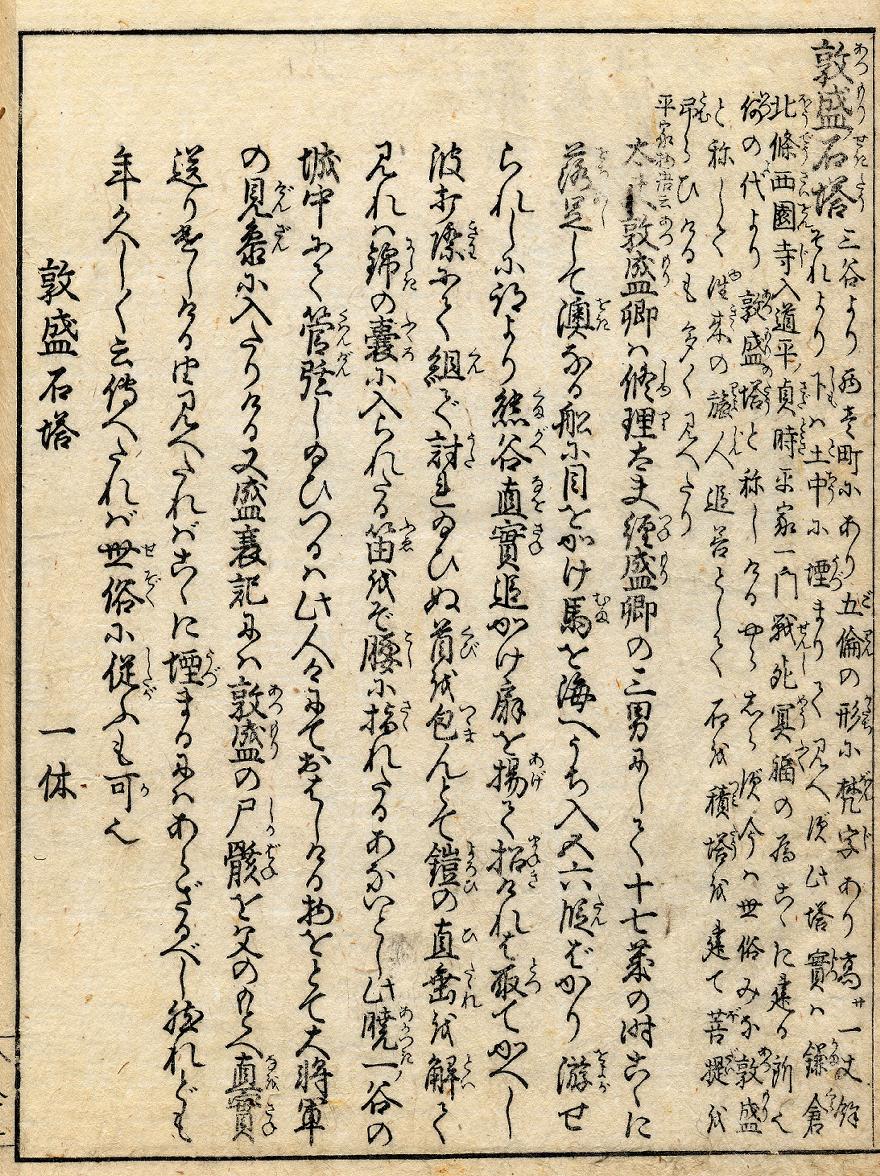 敦盛石塔 三谷より西壱町にあり五倫の形に梵字あり高サ一丈餘
それより下ハ土中に堙まりて見へず此塔實ハ鎌倉
北條西園寺入道平ノ貞時平家一門戦死冥福の為こゝに建る所也
何の代より敦盛塔と称しけるやらしらず今ハ世俗みな敦盛
と称して往来の旅人追善として石を積塔を建て菩提を
弔らひけるも多く見へたり
平家物語云
太夫敦盛卿ハ修理太夫經盛卿の三男にして十七歳の時こゝに
落足して澳なる船に目をかけ馬を海へうち入五六段ばかり游せ
られしに跡より熊谷直實追かけ扇を揚て招けれバ取てかへし
波打際にて組で討れ給ひぬ首を包んとて鎧の直垂を解て
見れハ錦の嚢に入られたる笛をぞ腰に指れたるあないとし此曉一ノ谷の
城中にて管弦し給ひつるハ此人々にておはしける物をとて大将軍
の見参に入たりける又盛衰記にハ敦盛の尸骸を父のもとへ直實
送り遣しける由見へたれバこゝに堙まるにハあらざるべし然れども
年久しく云傳へたれバ世俗に從ふも可也
敦盛石塔 一休